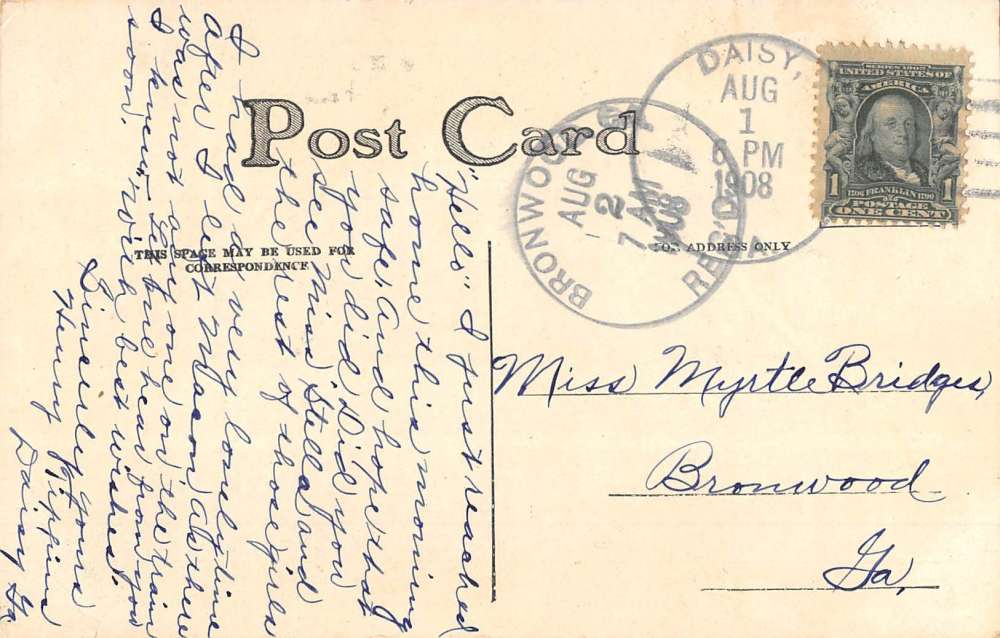 Post Card
THIS SPACE MAY BE USED FOR
CORRESPONDENCE
FOR ADDRESS ONLY
DAISY,
AUG
1
6 PM
1908
GA
BRONWOOD
AUG
2
7 AM
1908
REC'D.
SERIES 1902
UNITED STATES OF
AMERICA
1 FRANKLIN 1
POSTAGE
ONE CENT
"Hello" I just reached
home this morning
safe, And hope that
you did Did you
see Miss Stella and
the rest of those girls
I had a very lonely time
after I left Macon, as there
was not any one on the train
I knew. Let me hear from you
soon. With best wishes.
Sincerely yours
Henry Kippins
Daisy Ga
Miss Myrtle Bridges,
Bronwood
Ga,